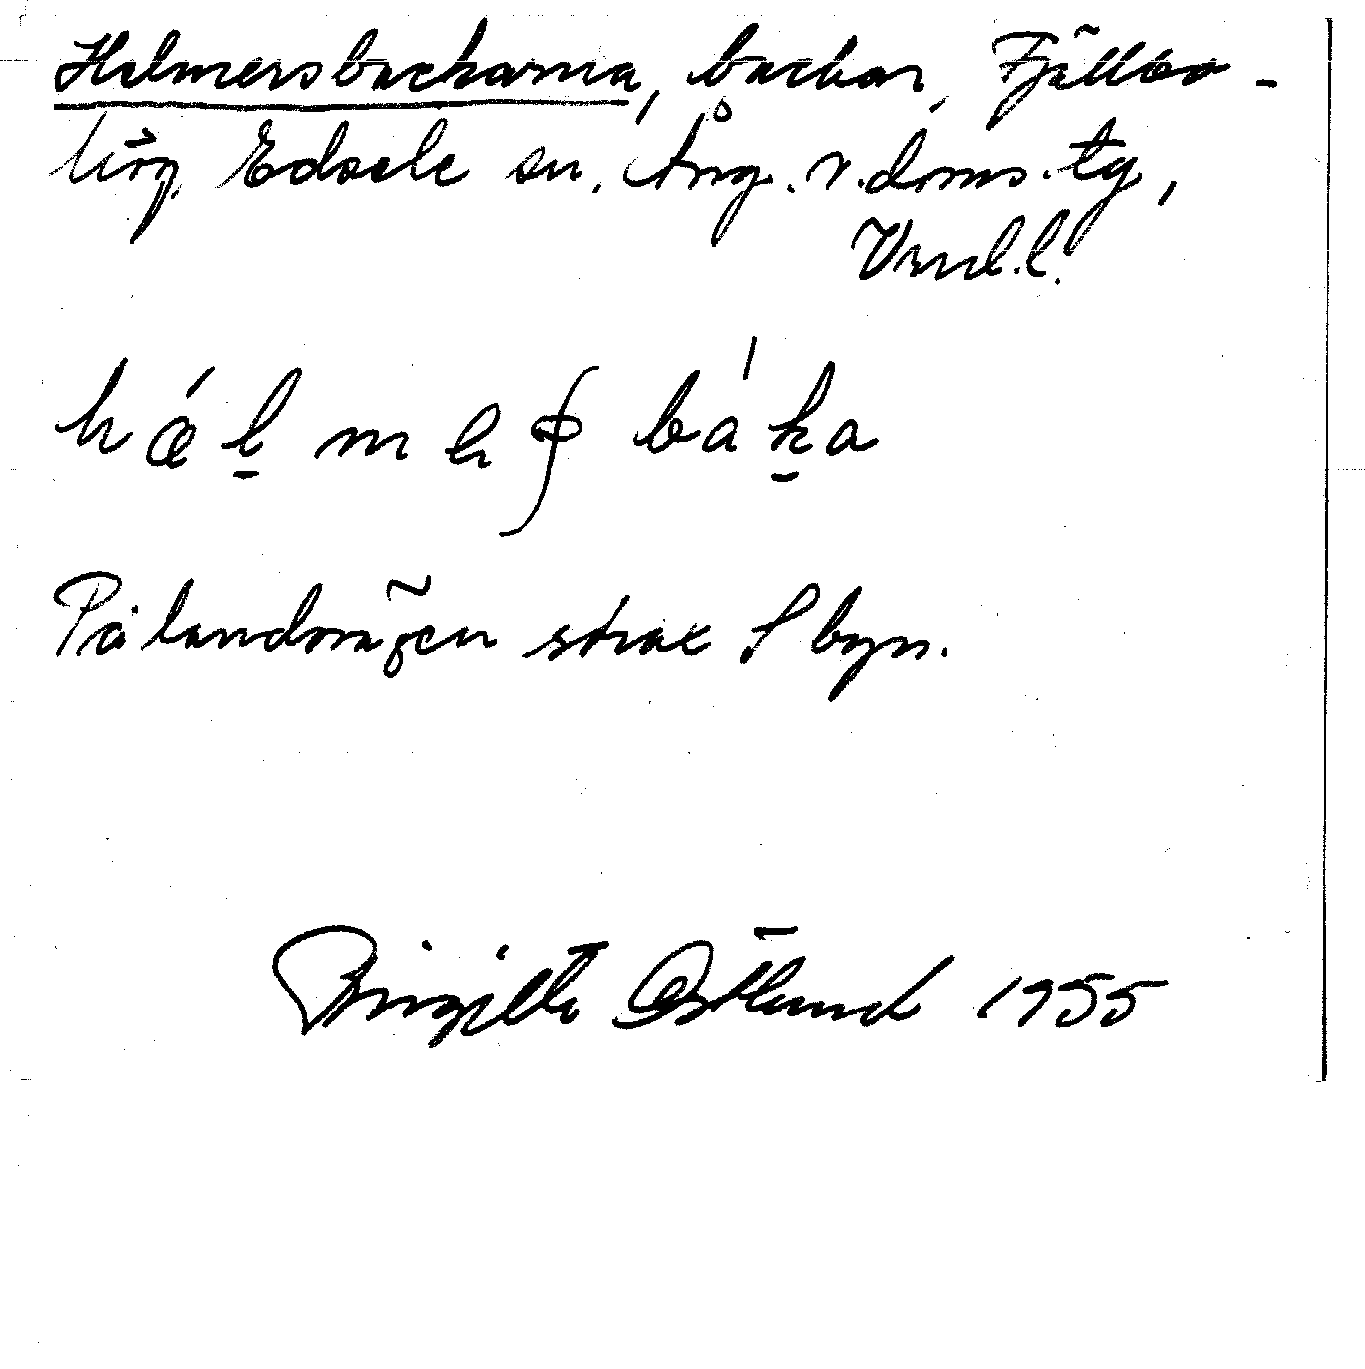 Halmersbackarna, backar, Fjällbo-
hög, Edsele sn. Ång. v. doms. tg,
Vnrl. l.
hǽl̠ mer̥ʃ báḵa
På landsvägen strax S byn.
Birgitta Östlund 1955